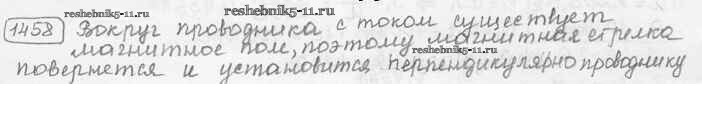 reshebnik5-11.ru
reshebnik5-11.ru
1458 Вокруг проводника с током существует
магнитное поле, поэтому магнитная стрелка
повернется и установится перпендикулярно проводнику
reshebnik5-11.ru